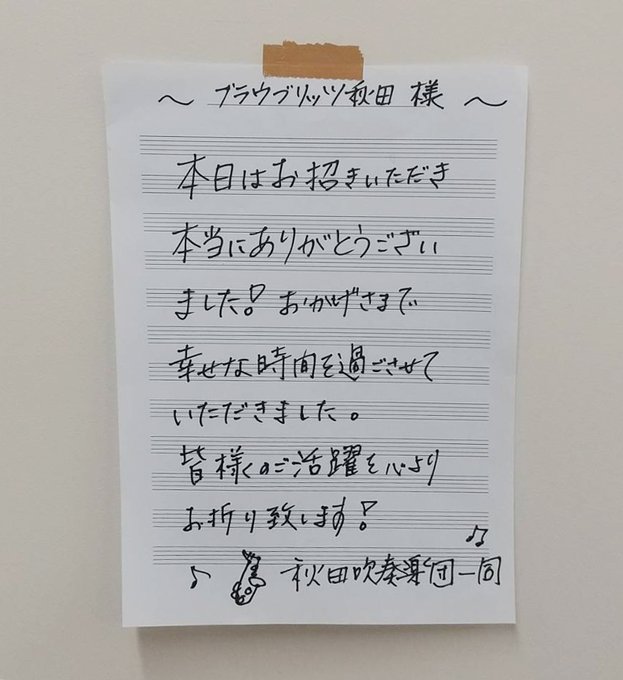 ～ ブラウブリッツ秋田 様 ～
本日はお招きいただき
本当にありがとうござい
ました! おかげさまで
幸せな時間を過ごさせて
いただきました。
皆様のご活躍を心より
お祈り致します!
秋田吹奏楽団一同